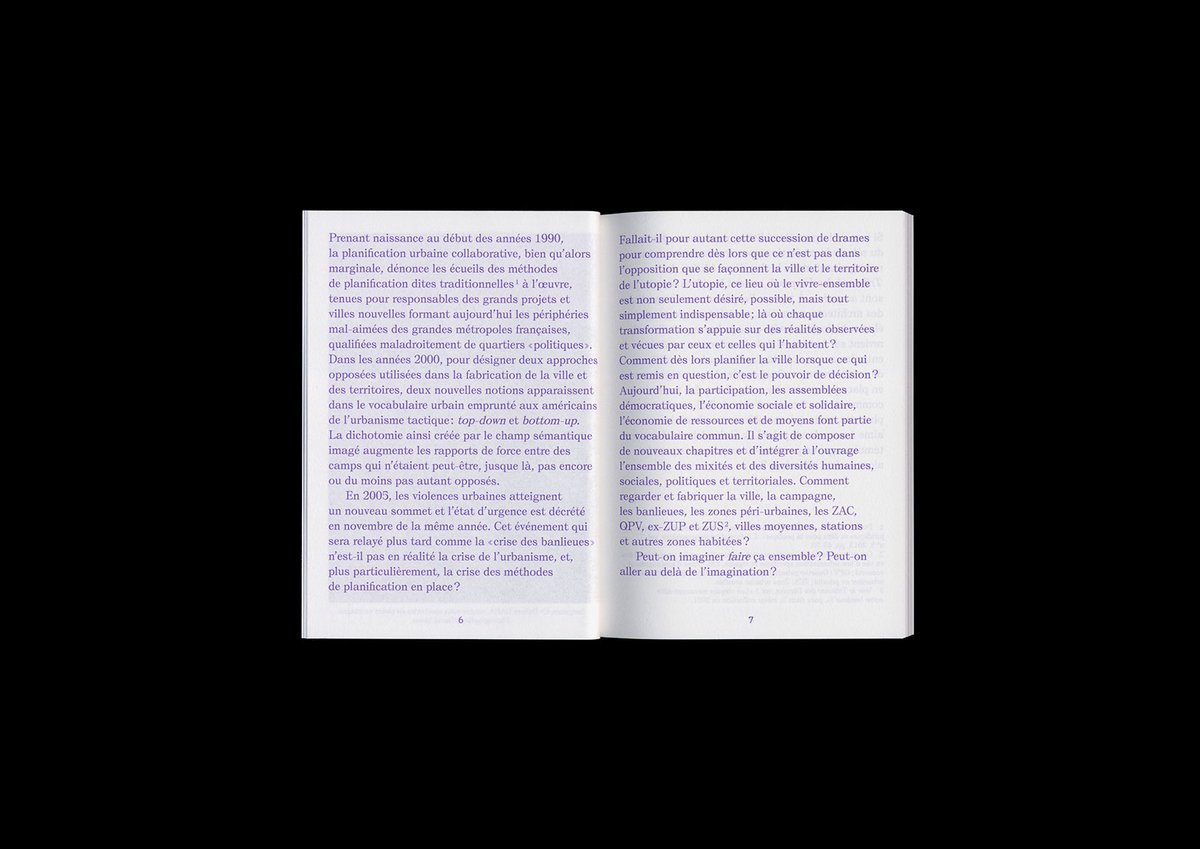 Prenant naissance au début des années 1990,
la planification urbaine collaborative, bien qu’alors
marginale, dénonce les écueils des méthodes
de planification dites traditionnelles¹ à l’œuvre,
tenues pour responsables des grands projets et
villes nouvelles formant aujourd’hui les périphéries
mal-aimées des grandes métropoles françaises,
qualifiées maladroitement de quartiers «politiques».
Dans les années 2000, pour désigner deux approches
opposées utilisées dans la fabrication de la ville et
des territoires, deux nouvelles notions apparaissent
dans le vocabulaire urbain emprunté aux américains
de l’urbanisme tactique: top-down et bottom-up.
La dichotomie ainsi créée par le champ sémantique
imagé augmente les rapports de force entre des
camps qui n’étaient peut-être, jusque là, pas encore
ou du moins pas autant opposés.
En 2005, les violences urbaines atteignent
un nouveau sommet et l’état d’urgence est décrété
en novembre de la même année. Cet événement qui
sera relayé plus tard comme la «crise des banlieues»
n’est-il pas en réalité la crise de l’urbanisme, et,
plus particulièrement, la crise des méthodes
de planification en place?
6
Fallait-il pour autant cette succession de drames
pour comprendre dès lors que ce n’est pas dans
l’opposition que se façonnent la ville et le territoire
de l’utopie? L’utopie, ce lieu où le vivre-ensemble
est non seulement désiré, possible, mais tout
simplement indispensable; là où chaque
transformation s’appuie sur des réalités observées
et vécues par ceux et celles qui l’habitent?
Comment dès lors planifier la ville lorsque ce qui
est remis en question, c’est le pouvoir de décision?
Aujourd’hui, la participation, les assemblées
démocratiques, l’économie sociale et solidaire,
l’économie de ressources et de moyens font partie
du vocabulaire commun. Il s’agit de composer
de nouveaux chapitres et d’intégrer à l’ouvrage
l’ensemble des mixités et des diversités humaines,
sociales, politiques et territoriales. Comment
regarder et fabriquer la ville, la campagne,
les banlieues, les zones péri-urbaines, les ZAC,
QPV, ex-ZUP et ZUS², villes moyennes, stations
et autres zones habitées?
Peut-on imaginer faire ça ensemble? Peut-on
aller au delà de l’imagination?
7